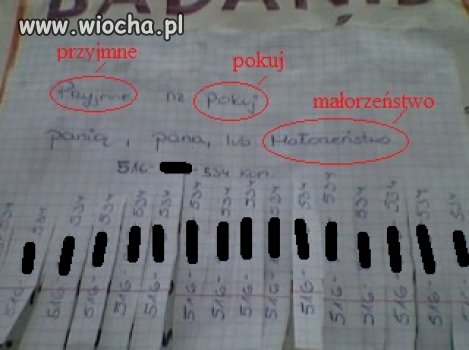 www.wiocha.pl
przyjmne
pokuj
małorzeństwo
Przyjmne na pokuj
panią, pana, lub Małorzeństwo
516- -534 kom.
534 534 534 534 534 534 534 534 534 534 534 534 534 534
516- 516- 516- 516- 516- 516- 516- 516- 516- 516- 516- 516- 516- 516-